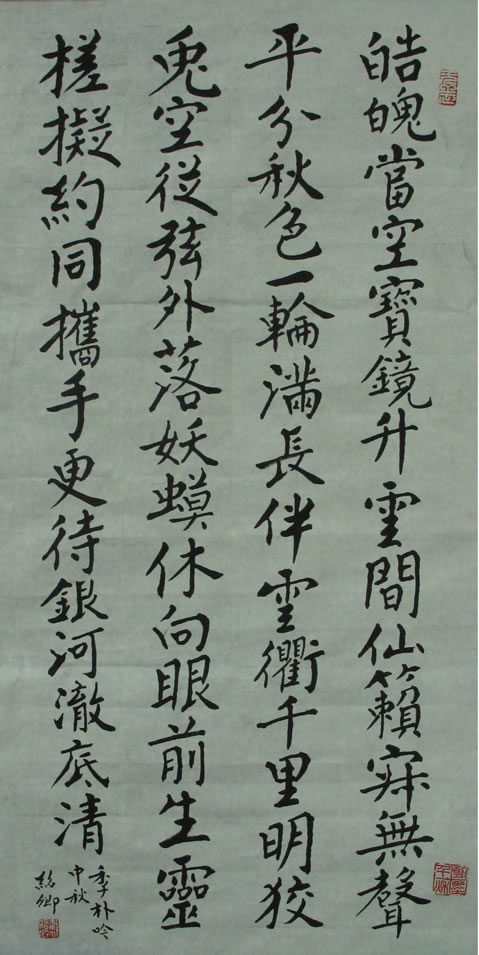 皓魄當空寶鏡升雲間仙籟寂無聲
平分秋色一輪滿長伴雲衢千里明狡
兔空從弦外落妖蟆休向眼前生靈
槎擬約同攜手更待銀河澈底清
李朴吟
中秋